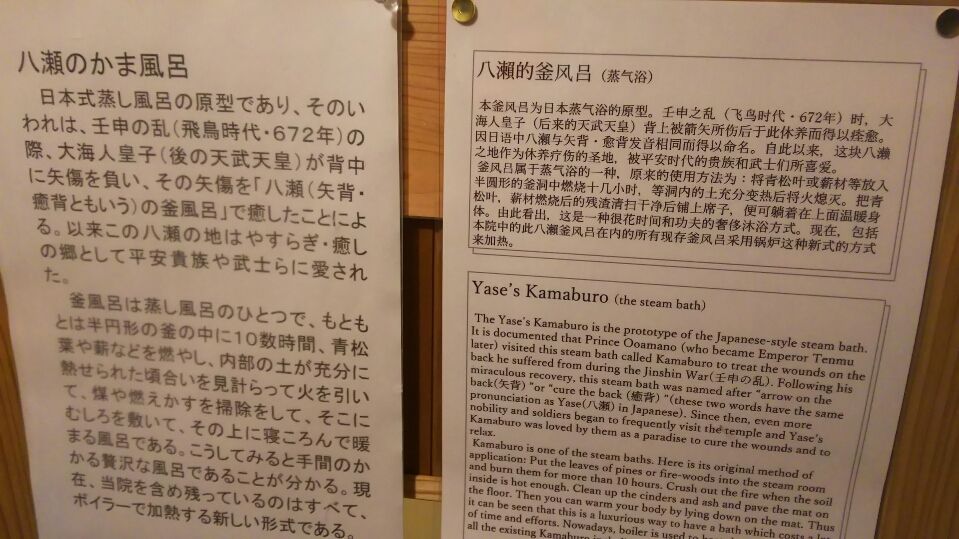 八瀬のかま風呂
日本式蒸し風呂の原型であり、そのい
われは、壬申の乱(飛鳥時代・672年)の
際、大海人皇子(後の天武天皇)が背中
に矢傷を負い、その矢傷を「八瀬(矢背・
癒背ともいう)の釜風呂」で癒したことによ
る。以来この八瀬の地はやすらぎ・癒し
の郷として平安貴族や武士らに愛され
た。
釜風呂は蒸し風呂のひとつで、もとも
とは半円形の釜の中に10数時間、青松
葉や薪などを燃やし、内部の土が充分に
熱せられた頃合いを見計らって火を引い
て、煤や燃えかすを掃除をして、そこに
むしろを敷いて、その上に寝ころんで暖
まる風呂である。こうしてみると手間のか
かる贅沢な風呂であることが分かる。現
在、当院を含め残っているのはすべて、
ボイラーで加熱する新しい形式である。
八瀬的釜风吕（蒸气浴）
本釜风吕为日本蒸气浴的原型。壬申之乱（飞鸟时代・672年）时，大
海人皇子（后来的天武天皇）背上被箭矢所伤后于此休养而得以痊愈。
因日语中八濑与矢背・愈背发音相同而得以命名。自此以来，这块八濑
之地作为休养疗伤的圣地，被平安时代的贵族和武士们所喜爱。
釜风吕属于蒸气浴的一种，原来的使用方法为：将青松叶或薪材等放入
半圆形的釜洞中燃烧十几小时，等洞内的土充分变热后将火熄灭。把青
松叶，薪材燃烧后的残渣清扫干净后铺上席子，便可躺着在上面温暖身
体。由此看出，这是一种很花时间和功夫的奢侈沐浴方式。现在，包括
本院中的此八濑釜风吕在内的所有现存釜风吕采用锅炉这种新式的方式
来加热。
Yase's Kamaburo (the steam bath)
The Yase's Kamaburo is the prototype of the Japanese-style steam bath.
It is documented that Prince Ooamano (who became Emperor Tenmu
later) visited this steam bath called Kamaburo to treat the wounds on the
back he suffered from during the Jinshin War(壬申の乱). Following his
miraculous recovery, this steam bath was named after "arrow on the
back(矢背) "or "cure the back (癒背) "(these two words have the same
pronunciation as Yase(八瀬) in Japanese). Since then, even more
nobility and soldiers began to frequently visit the temple and Yase's
Kamaburo was loved by them as a paradise to cure the wounds and to
relax.
Kamaburo is one of the steam baths. Here is its original method of
application: Put the leaves of pines or fire-woods into the steam room
and burn them for more than 10 hours. Crush out the fire when the soil
inside is hot enough. Clean up the cinders and ash and pave the mat on
the floor. Then you can warm your body by lying down on the mat. Thus
it can be seen that this is a luxurious way to have a bath which costs a lot
of time and efforts. Nowadays, boiler is used to
all the existing Kamaburo